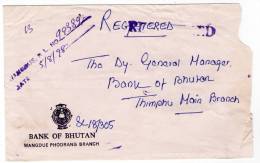 13
REGISTERED
5/8/98
The Dy. General Manager,
Bank of Bhutan
Thimphu Main Branch
BANK OF BHUTAN
WANGDUE PHODRANG BRANCH